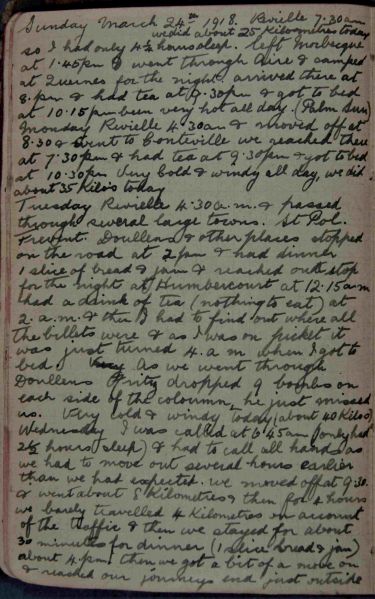 Sunday March 24th 1918. Rveille 7.30am
we did about 25 Kilometres today
so I had only 4½ hours sleep. left Morbecque
at 1.45pm & went through Aire & camped
at for the night. arrived there at
8.pm & had tea at 9.30pm & got to bed
at 10.15pm been very hot all day. (Palm Sun)
Monday Rveille 4.30am & moved off at
8.30 & went to Conteville we reached there
at 7.30pm & had tea at 9.30pm & got to bed
at 10.30pm Very Cold & windy all day, we did
about 35 Kilo's today
Tuesday Rveille 4.30a.m. & passed
through several large towns. St Pol.
Frevent. Doullens & other places stopped
on the road at 2pm & had dinner
1 slice of bread & jam & reached our stop
for the night at Humbercourt at 12.15am
had a drink of tea (nothing to eat) at
2.a.m. & then I had to find out where all
the billets were & as I was on picket it
was just turned 4.a.m when I got to
bed. As we went through
Doullens Fritz dropped 9 bombs on
each side of the coloumn, he just missed
us. Very cold & windy today (about 40 Kilos)
Wednesday I was called at 6.45am (only had
2½ hours sleep) & had to call all hands as
we had to move out several hours earlier
than we had expected. we moved off at 9.30.
& went about 8 Kilometres & then for 4 hours
we barely travelled 4 Kilometres on account
of the traffic & then we stayed for about
30 minutes for dinner (1 slice bread & jam)
about 4.pm. then we got a bit of a move on
& reached our journeys end just outside